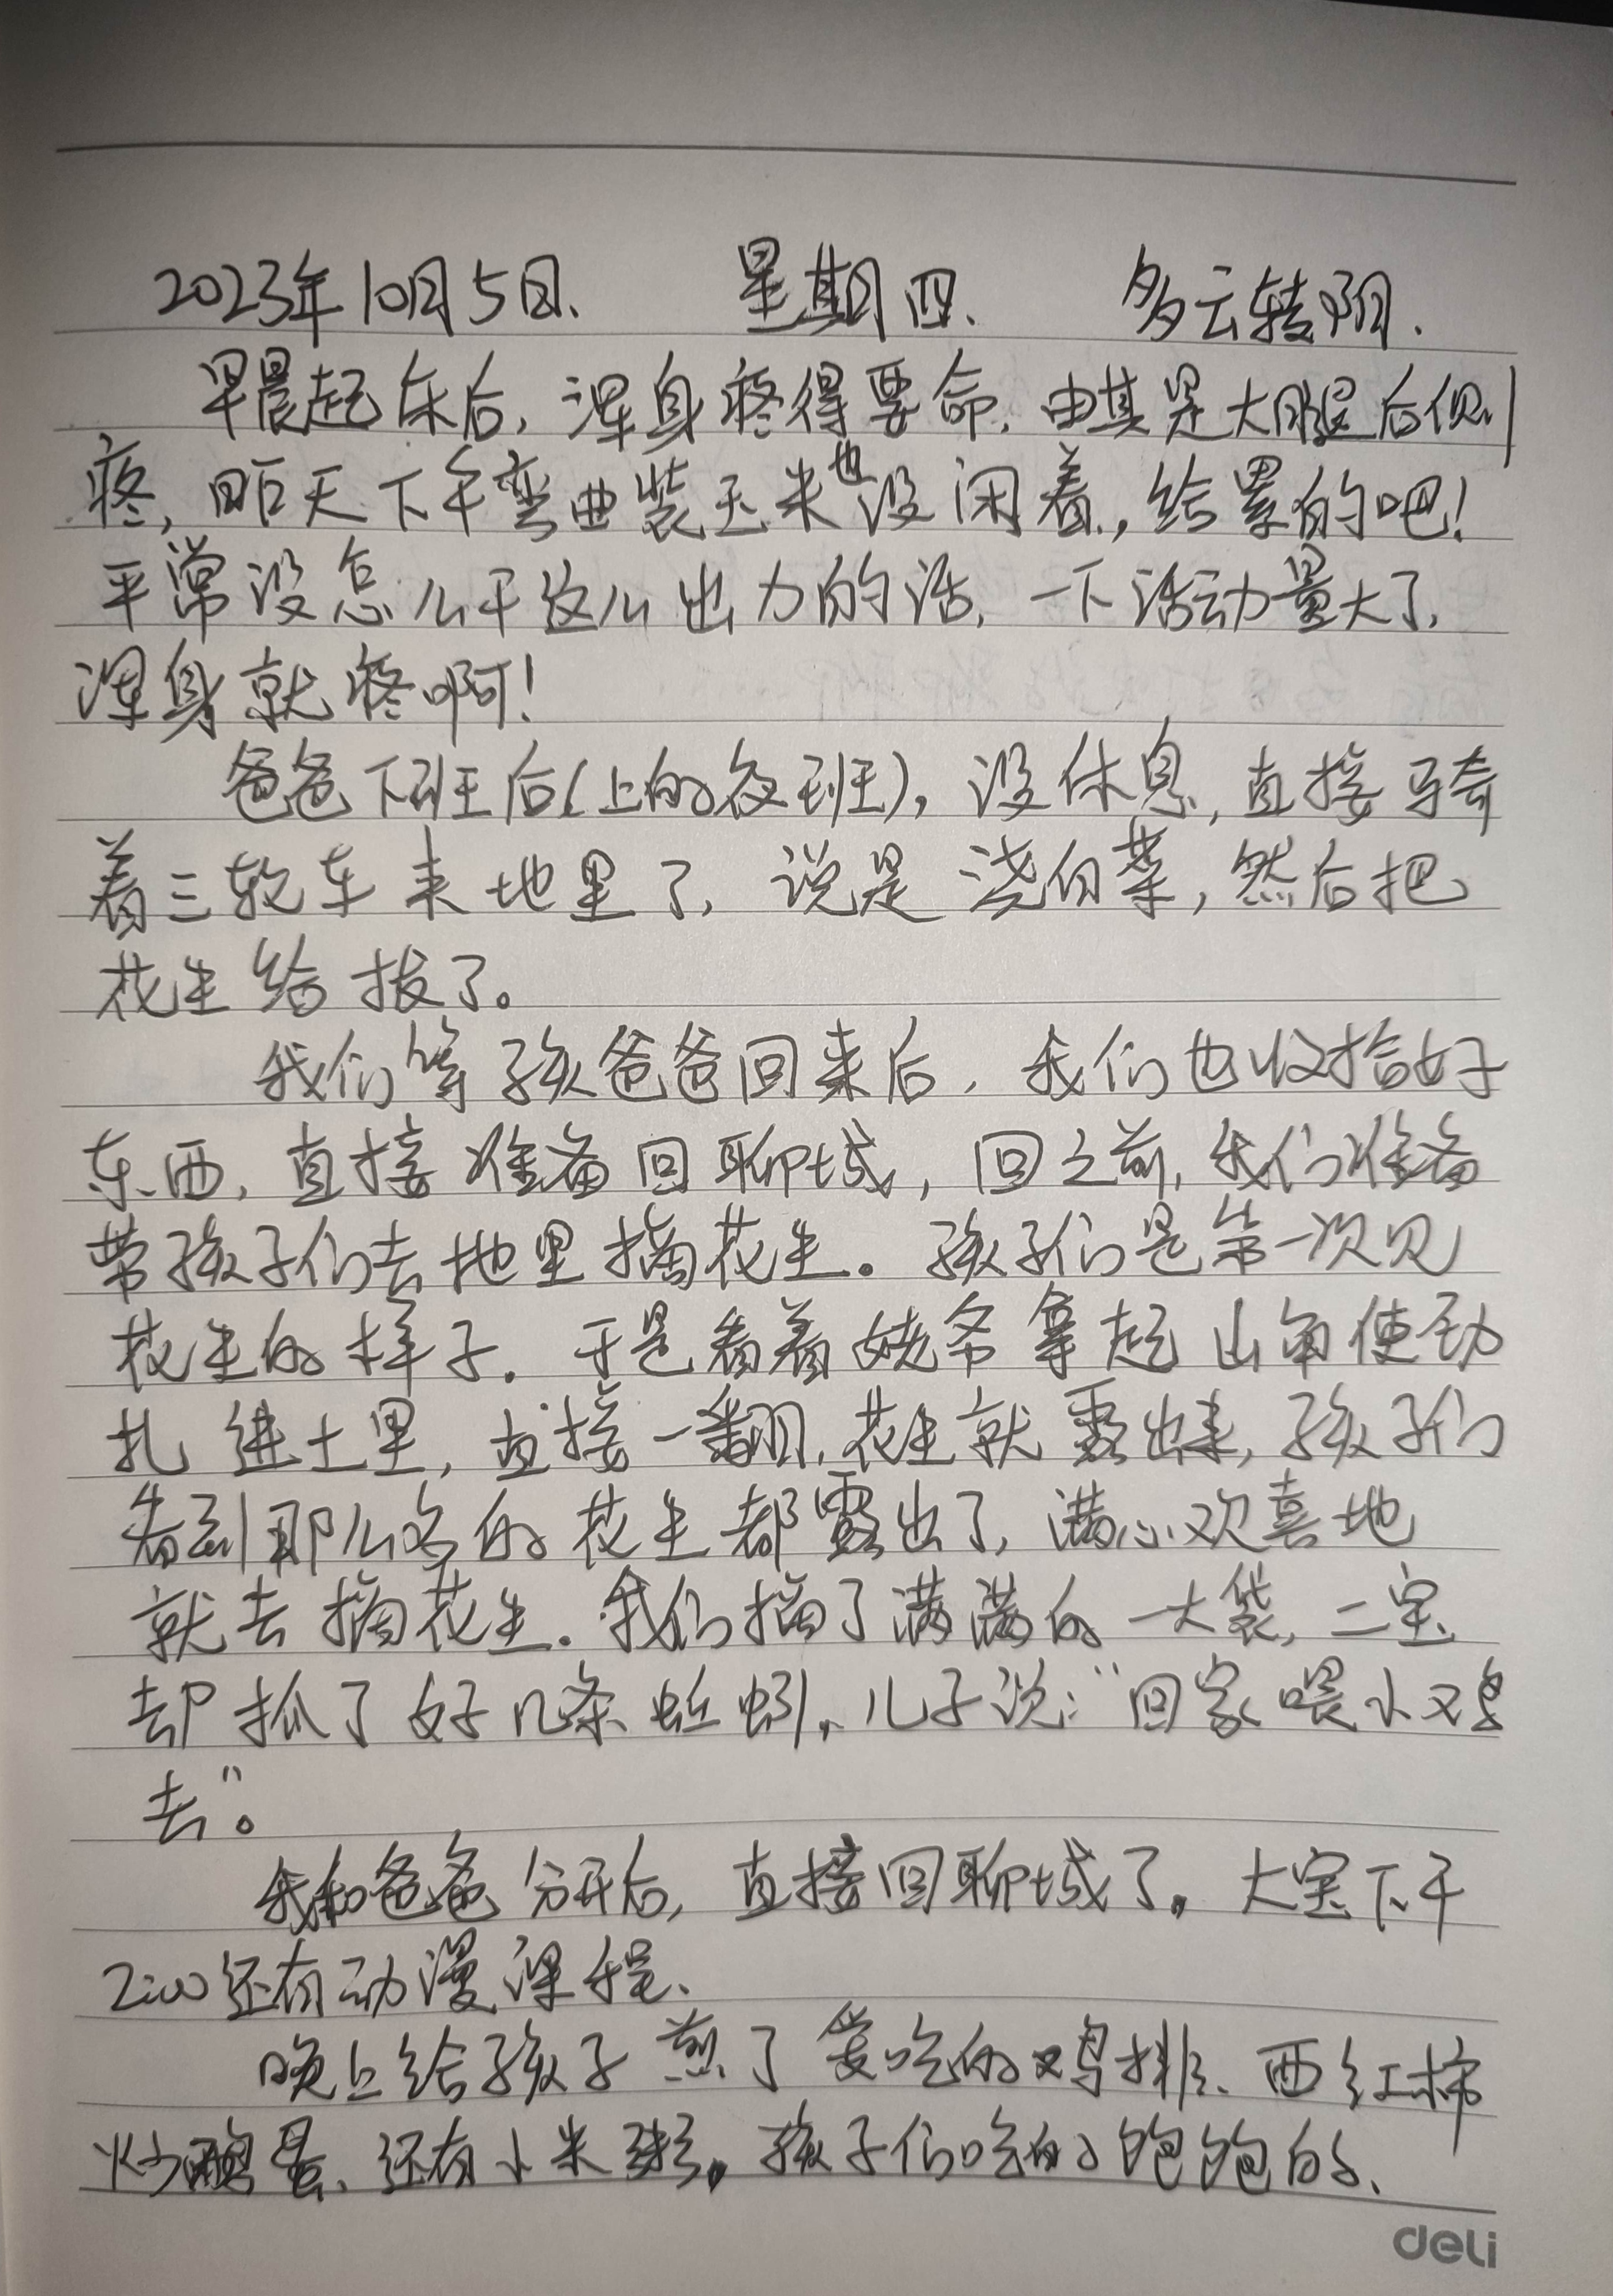 2023年10月5日、 星期四、 多云转阴.
早晨起床后, 浑身疼得要命, 由其是大腿后侧
疼, 昨天下午弯曲装玉米也没闲着, 给累的吧!
平常没怎么干这么出力的活, 一下活动量大了,
浑身就疼啊!
爸爸下班后(上的夜班), 没休息, 直接骑
着三轮车来地里了, 说是浇白菜, 然后把
花生给拔了。
我们等孩爸爸回来后, 我们也收拾好
东西, 直接准备回聊城, 回之前, 我们准备
带孩子们去地里摘花生。孩子们是第一次见
花生的样子. 于是看着姥爷拿起 使劲
扎进土里, 直接一翻, 花生就露出来, 孩子们
看到那么多的花生都露出了, 满心欢喜地
就去摘花生. 我们摘了满满的一大袋, 二宝
却抓了好几条蚯蚓, 儿子说:“回家喂小鸡
去”。
我和爸爸分开后, 直接回聊城了。大宝下午
2:00还有动漫课程、
晚上给孩子煎了爱吃的鸡排、西红柿
炒鸡蛋、还有小米粥。孩子们吃的饱饱的、
deli